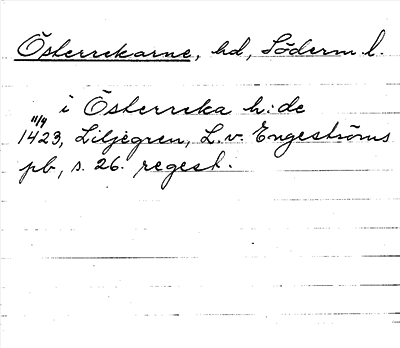 Österrekarne, hd, Söderm l.
i Österreka h:de
11/9
1423, Liljegren, L. v. Engeströms
pb, s. 26. regest.